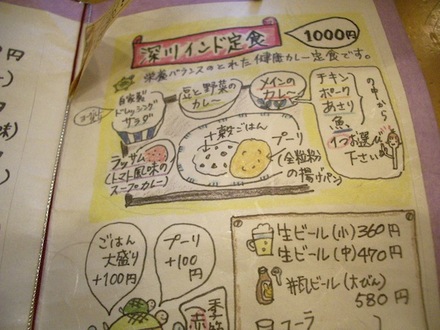 深川インド定食
1000円
栄養バランスのとれた健康カレー定食です。
自家製
ドレッシング
サラダ
豆と野菜の
カレー
メインの
カレー
チキン
ポーク
あさり
魚
の中から
1つお選び
下さい
ラッサム
(トマト風味の
スープカレー)
十穀ごはん
プーリ
(全粒粉)
の揚げパン
ごはん
大盛り
+100円
プーリ
+100
円
生ビール(小)360円
生ビール(中)470円
瓶ビール(大びん)
580円
コーラ
季節
赤
円
味)
円